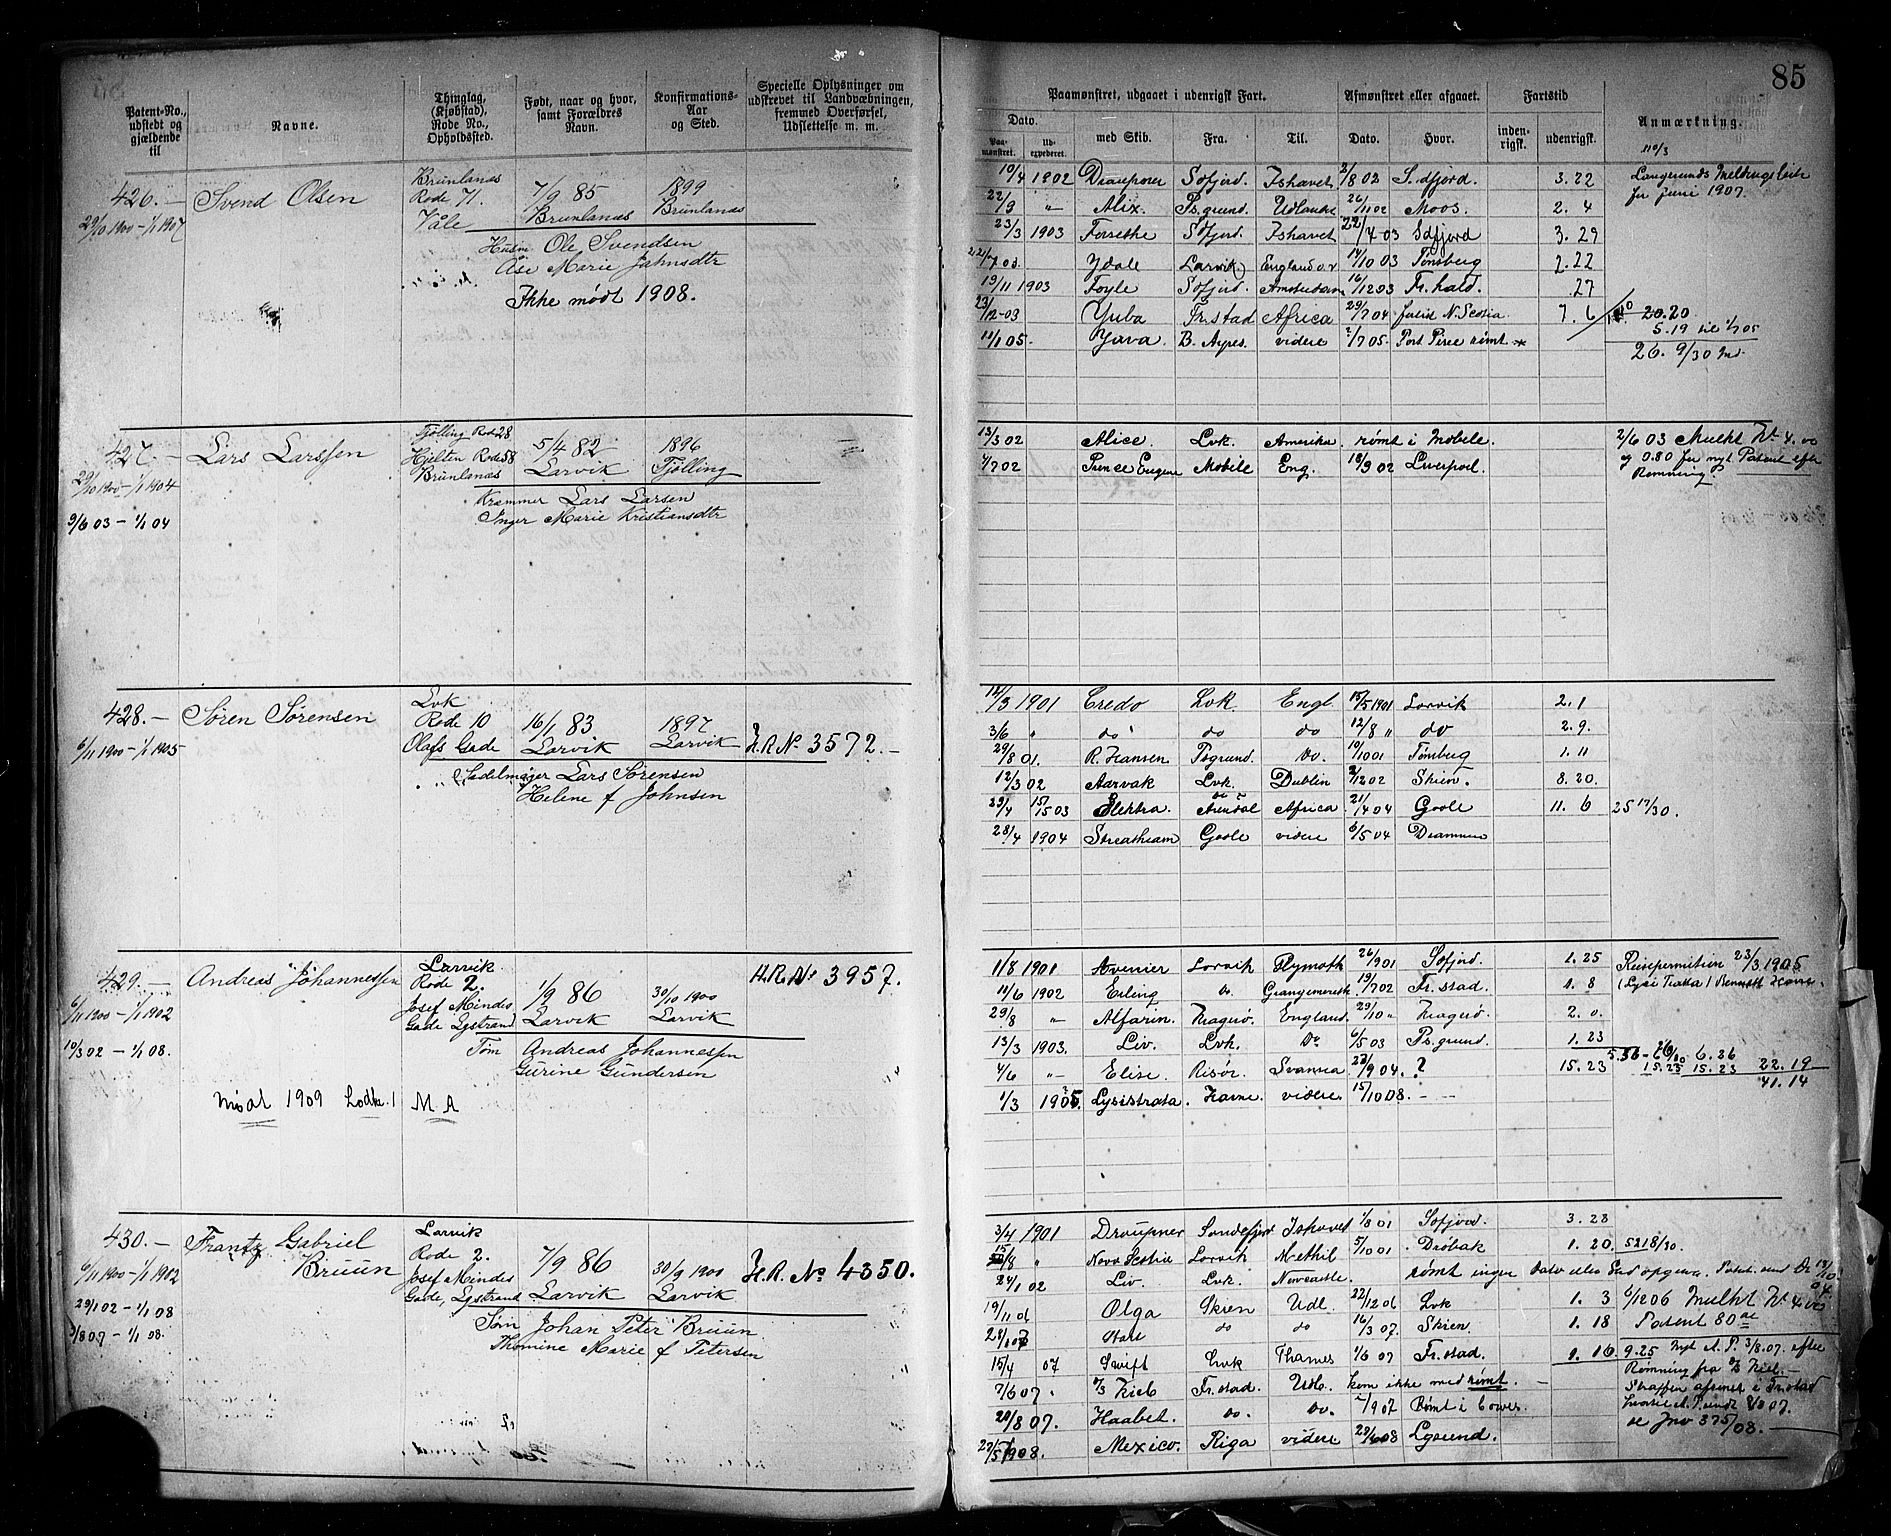 85
Patent-No., udstedt og gjældende til
Navne.
Thinglag, (Kjøbstad), Rode No., Opholdssted.
Født, naar og hvor, samt Forældres Navn.
Konfirmations-Aar og Sted.
Specielle Oplysninger om udskrevet til Landværnet, fremmed Overførsel, Udslettelse m. m.
Paamønstret, udgaaet i udenrigsk Fart.
Afmønstret eller afgaaet.
Fartstid
Anmærkning.
Dato.
Paa-mønstret.
Ud-expederet.
med Skib.
Fra.
Til.
Dato.
Hvor.
inden-rigsk.
udenrigsk.
426.—
29/10 1900 – 1/1 1907
Svend Olsen
Brunlanæs
Rode 71.
Våle
7/9 85
Brunlanæs
1899
Brunlanæs
Husm Ole Svendsen
Åse Marie Jahnsdtr
Ikke mødt 1908.
10/4 1902 Draupner Sdfjord. Ishavet 2/8 02 S.dfjord. 3.22
22/9 " Alix. Ps.grund. Udlandet 26/11 02 Moss. 2.4
23/3 1903 Forsethe Sdfjord. Ishavet 22/7 03 Sdfjord 3.29
Ydale Larvik England 14/10 03 Tønsberg 2.22
19/11 1903 Foyle Sdfjord. Amsterdam 16/12 03 Fr.hald. .27
23/12-03 Yuba Fr.stad Africa 29/7 04 N.Scotia 7.6
11/1 05. Yuva. B. Ayres. videre 2/7 05. Port Pirie rømt
Langesunds
for juni 1907.
20.20
5.19 til 1/7 05
26. 9/30 Md.
427.—
29/10 1900 – 1/1 1904
9/6 03 – 1/1 04
Lars Larssen
Tjølling Rode 28
Hjelten Rode 58
Brunlanæs
5/4 82
Larvik
1896
Tjølling
Krammer Lars Larsen
Inger Marie Kristiansdtr
13/3 02 Alice. Lvk. Amerika. rømt i Mobile.
4/7 02 Prince Eugene Mobile Eng. 18/9 02 Liverpool.
2/6 03 Mulkt Kr 4.00
og 0.80 for nyt Patent efter
Rømning.
428.—
6/11 1900 – 1/1 1905
Søren Sørensen
Lvk
Rode 10
Olafs Gade
16/1 83
Larvik
1897
Larvik
H.R.No 3572.—
Sadelmager Lars Sørensen
Helene f Johnsen
14/3 1901 Credo Lvk Engl. 15/5 1901 Larvik 2.1
3/6 " do do do 12/8 " do 2.9.
29/8 01. R. Hansen Psgrund. Do. 10/10 01 Tønsberg 1.11
12/3 02 Aarvak Lvk. Dublin 2/12 02 Skien. 8.20.
29/4 15/5 03 Elektra. Arendal Africa 21/4 04 Goole 11.6 25 17/30.
28/4 1904 Streatheam Goole videre 6/5 04 Drammen
429.—
6/11 1900 – 1/1 1902
10/3 02 – 1/1 08.
Andreas Johannessen
Larvik
Rode 2.
Josef Mindes
Gade Lystrand
1/9 86
Larvik
30/10 1900
Larvik
H.R.No 3957.
Tøm Andreas Johannessen
Gurine Gundersen
Mødt 1909 Lodtr. 1 M A
1/8 1901 Avenier Larvik Plymoth 26/9 01 Sdfjord. 1.25
11/6 1902 Erling Do. Grangemouth 19/7 02 Fr.stad. 1.8
29/8 " Alfarin. Kragerø. England. 29/10 " Kragerø. 2.0.
13/3 1903. Liv. Lvk. Do 6/5 03 Ps.grund. 1.23
4/6 " Elise. Risør. Svansea 27/9 04. ? 15.23
1/3 1905. Lysistrata. Havre. videre. 15/10 08. –
Reisepermission 23/3 1905
6.26
15.23 15.23 22.19
41.14
430.—
6/11 1900 – 1/1 1902
29/1 02 – 1/1 08
3/8 07 – 1/1 08.
Frantz Gabriel Bruun
Larvik
Rode 2.
Josef Mindes
Gade, Lystrand
7/9 86
Larvik
30/9 1900
Larvik
H.R. No 4350.
Tøm Johan Peter Bruun
Thomine Marie f Petersen
3/4 1901 Draupner Sandefjord Ishavet 1/8 01 Sdfjord. 3.28
15/8 " Nova Scotia Larvik Methil 5/10 01 Drøbak 1.20. 5218/30.
24/1 02 Liv. Lvk. Newcastle. rømt ingen Dato eller Sted opgivet.
19/11 06 Olga Skien Udl. 22/12 06 Lvk 1.3 6/12 06 Mulkt Kr 4
do do 16/3 07. Skien. 1.18 Patent 80 øre
15/4 07 Swift Lvk Thames 1/6 07 Fr.stad. 1.16 9.25 Nyt A.P. 3/8.07. efter
7/6 07. Kieb Fr.stad. Udl. kom ikke med rømt. – Rømning fra
20/8 07. Haabet. do. Do. 2/9 07 Rømt i Cowes.
27/5 1908. Mexico. Riga videre 29/6 08 Lysend.
Jno 375/08.